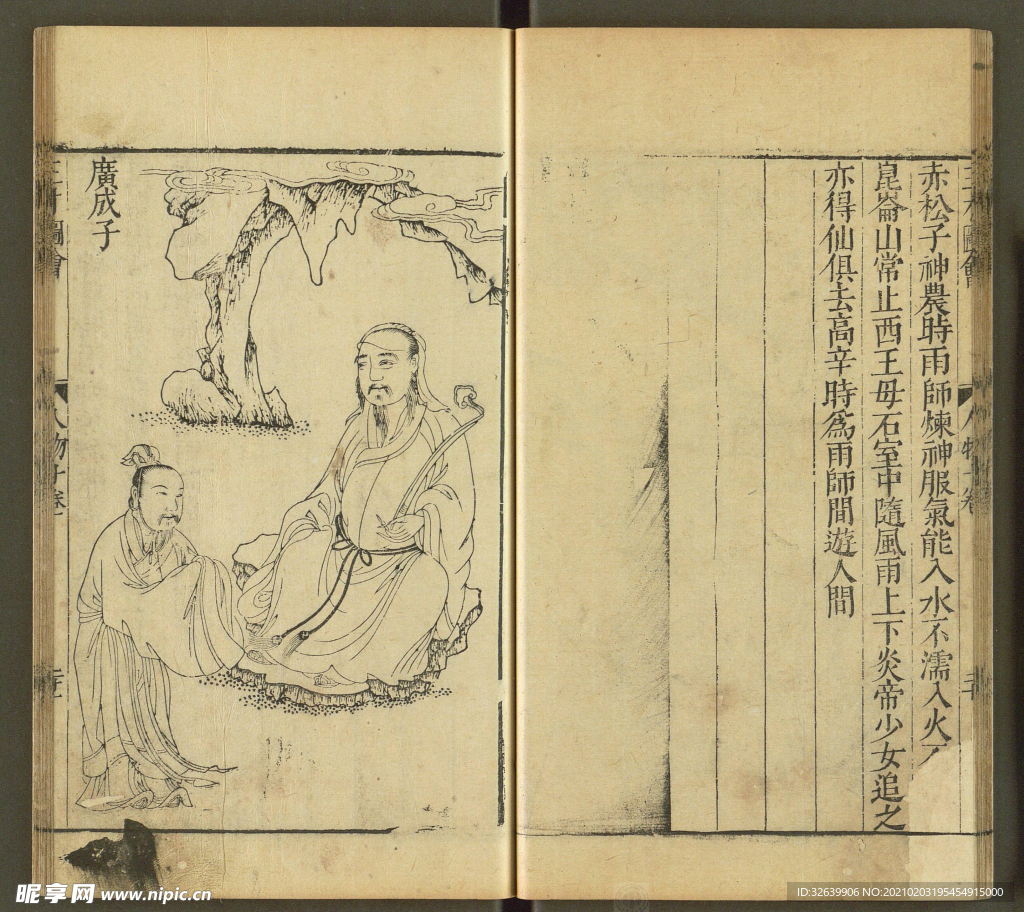 三才圖會
人物十卷
赤松子神農時雨師煉神服氣能入水不濡入火
崑崙山常止西王母石室中隨風雨上下炎帝少女追之
亦得仙俱去高辛時爲雨師間遊人間
廣成子
圖會
人物十卷
昵享网 www.nipic.cn
ID:32639906 NO:20210203195454915000